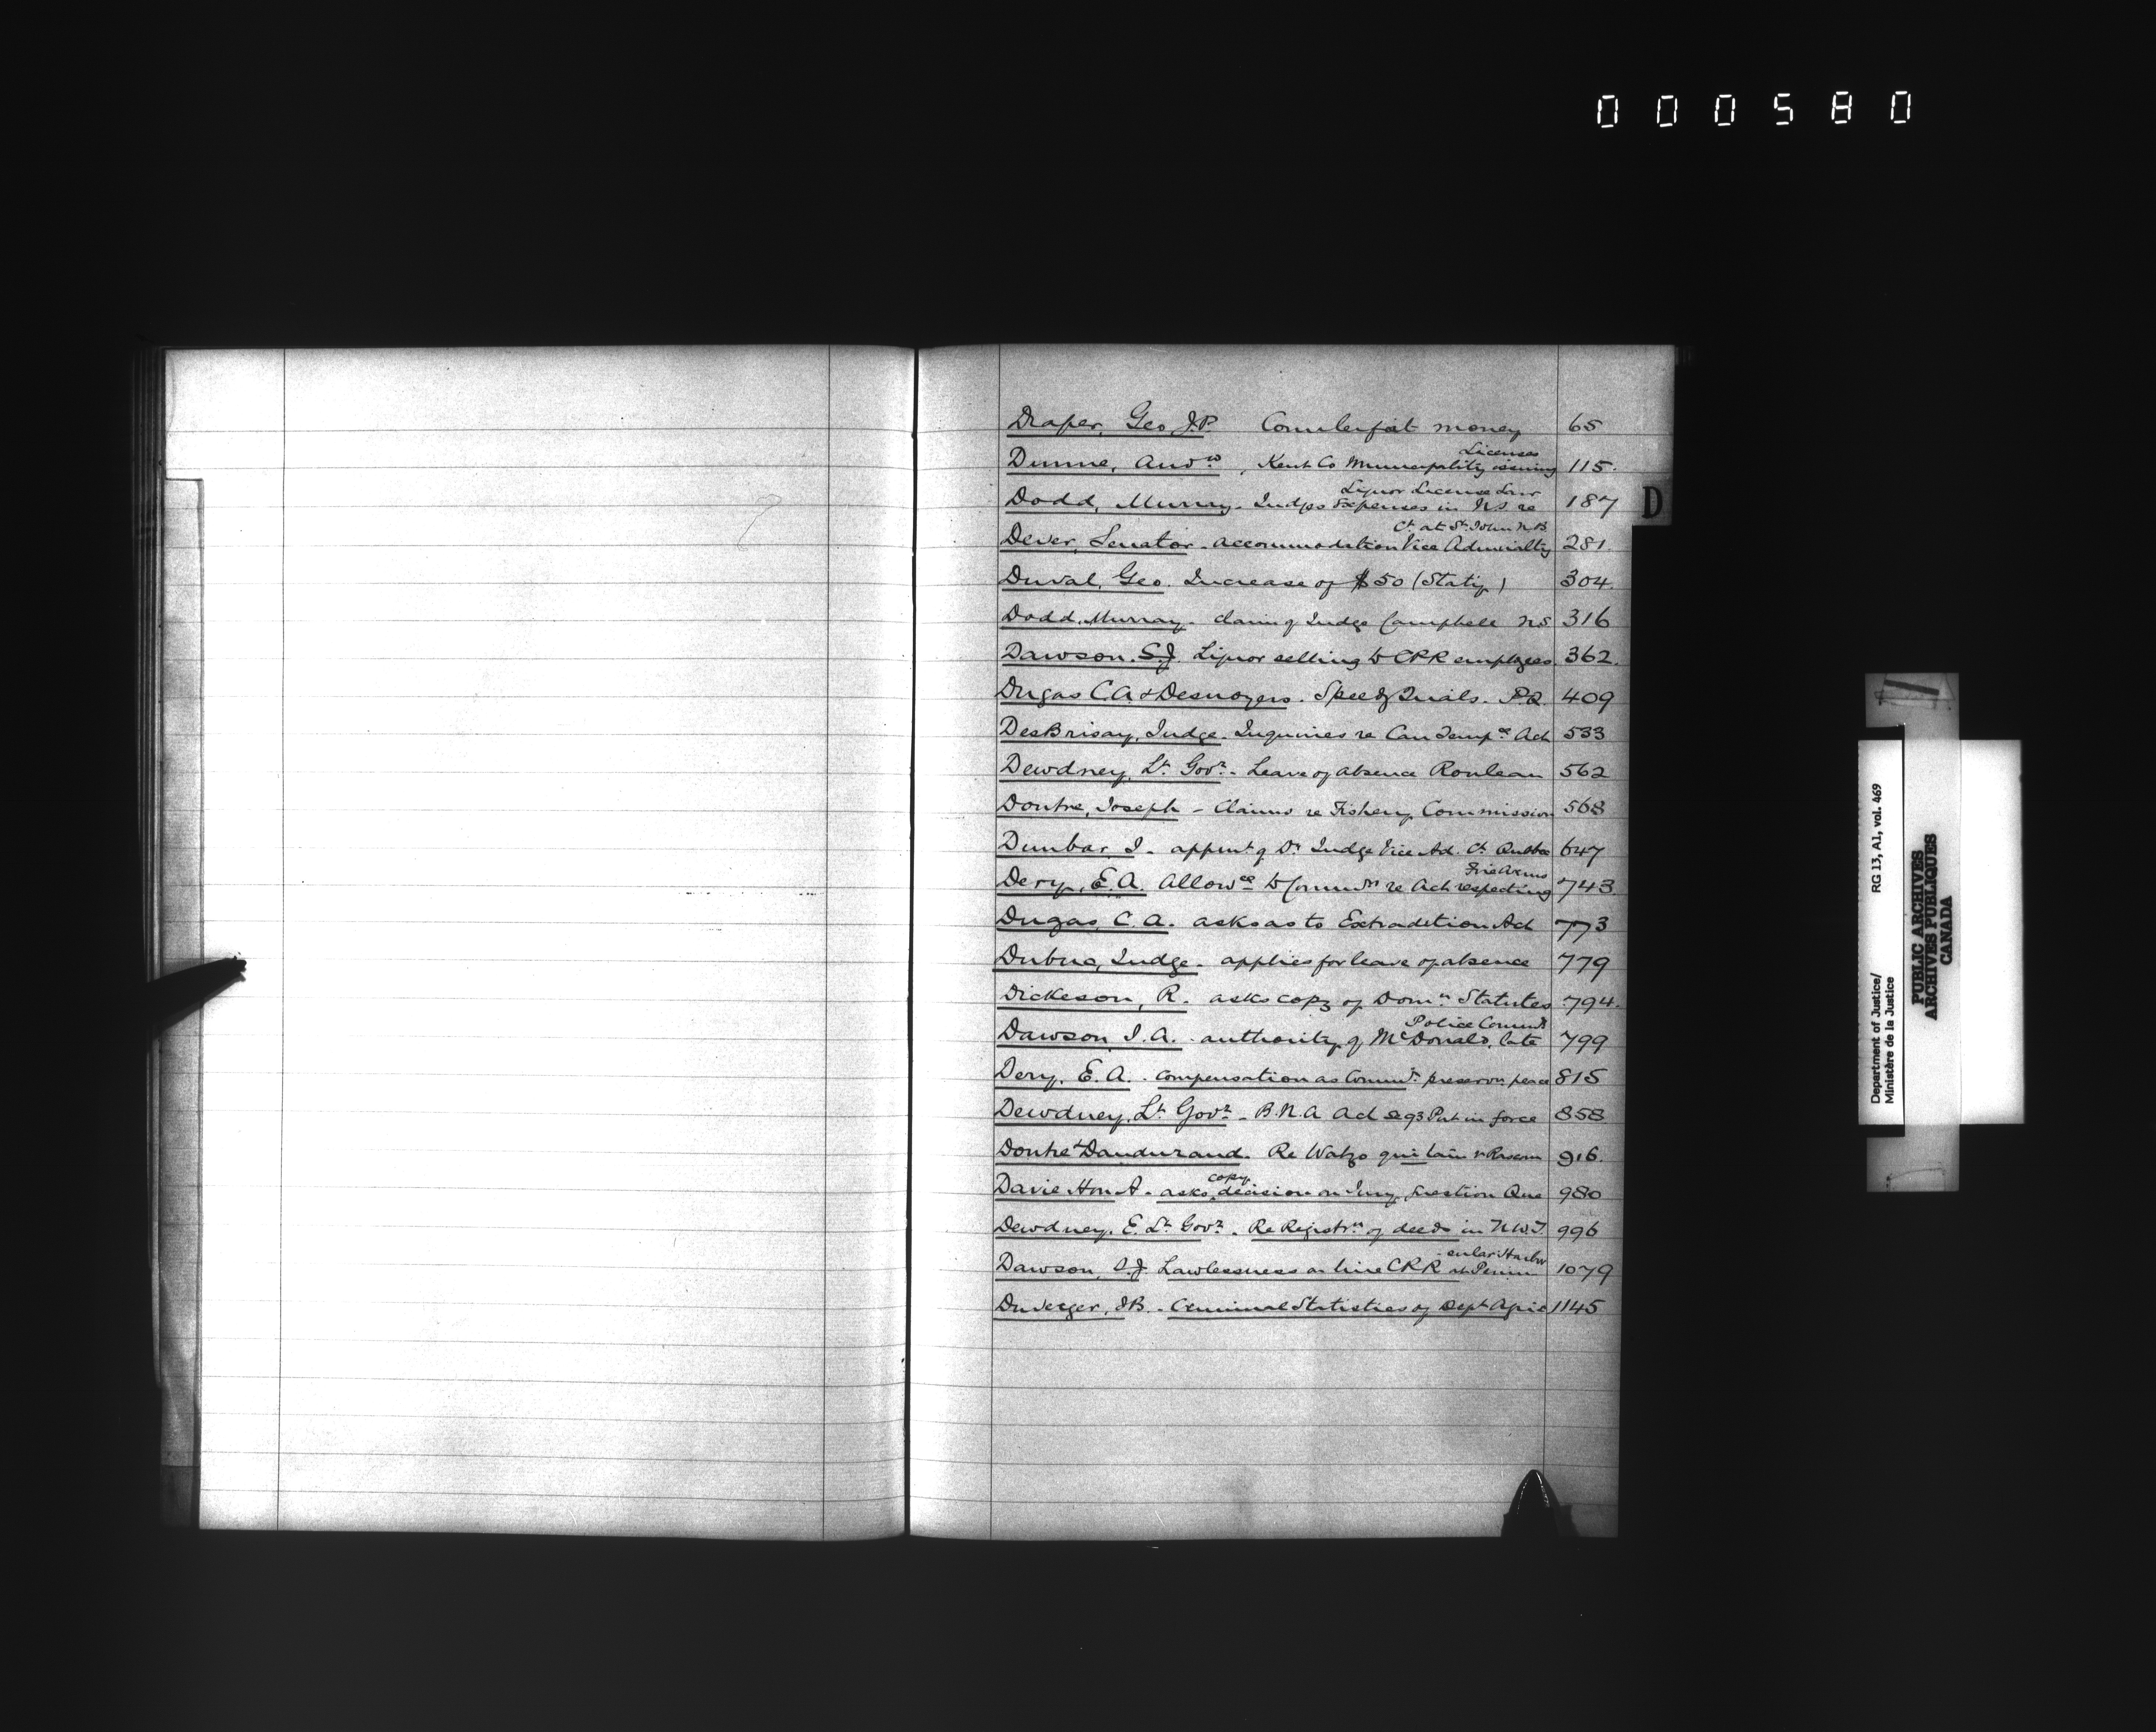 000580
Draper, Geo J.P. Counterfeit money 65
Licenses
Dunne, Andw, Kent Co Municipality issuing 115.
Liquor License Law
Dodd, Murray. Judges Expenses in N.S. re 187
Ct at St. John N.B.
Dever, Senator. accommodation Vice Admiralty 281.
Duval, Geo. Increase of $50 (Staty) 304.
Dodd, Murray. claim of Judge Campbell N.S. 316
Dawson. S.J. Liquor selling to CPR employees. 362.
Dugas C.A & Desnoyers. Speedy Trials. P.Q. 409
DesBrisay, Judge. Inquiries re Can Tempce Act 533
Dewdney, Lt Govr. Leave of absence Rouleau 562
Doutre, Joseph - Claims re Fishery Commission 568
Dunbar, J. appmt of Dy Judge Vice Ad. Ct Quebec 647
Fire Arms
Dery, E.A. Allowce to Commrs re Act respecting 743.
Dugas, C.A. asks as to Extradition Act 773
Dubuc, Judge. applies for leave of absence 779
Dickeson, R. asks copy of Domn Statutes 794.
Police Commr
Dawson J.A. authority of McDonald, late 799
Dery, E.A. compensation as Commr. preservn peace 815
Dewdney, Lt Govr - B.N.A Act se 93 Put in force 858
Doutre & Dandurand. Re Watzo qui tam v 916.
copy
Davie Hon A. asks decision on Jury question Que 980
Dewdney, E. Lt Govr. Re Registrn of deeds in N.W.T. 996
-sular Harbor
Dawson, S.J. Lawlessness on line CPR at Penin- 1079
Duverger, J.B. Criminal Statistics of Dept Agric 1145
D
Department of Justice/ RG 13, A1, vol. 469
Ministère de la Justice
PUBLIC ARCHIVES
ARCHIVES PUBLIQUES
CANADA